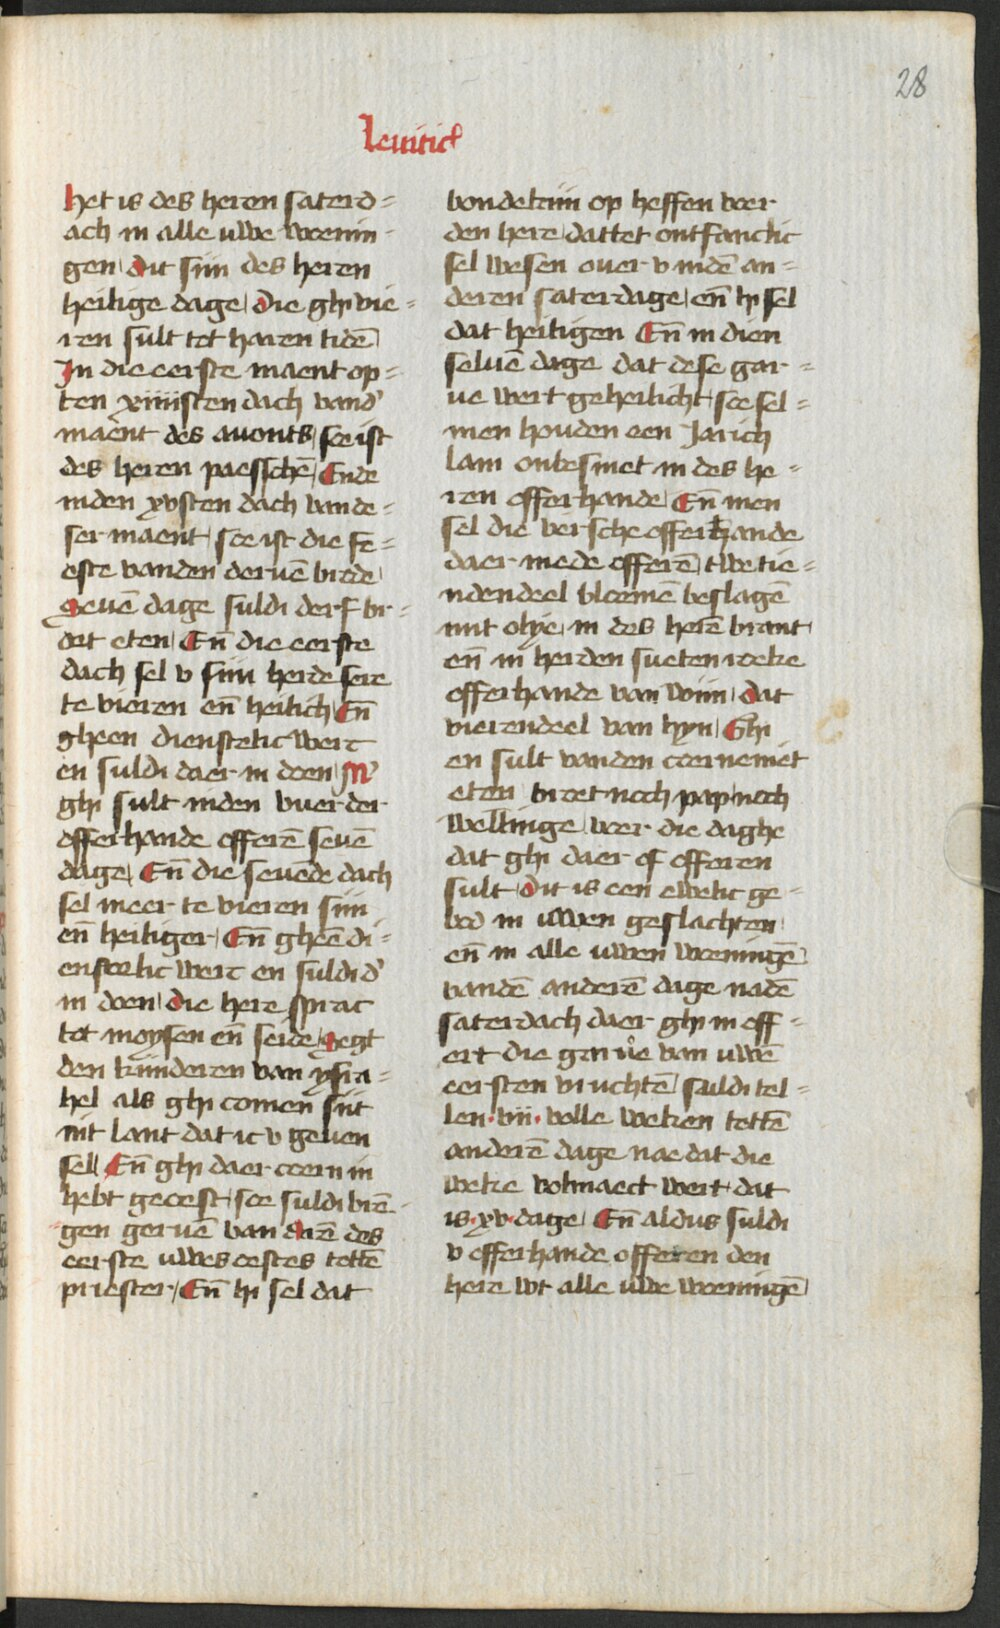 28
leuiticus
het is des heren saterd=
ach in alle uwe wonin=
gen dit sijn des heren
heilige dage die ghi vie=
ren sult tot haren tidē
In die eerste maent op=
ten xiiiisten dach vand'
maent des auonts soe ist
des heren paesschē Ende
inden xvsten dach vande=
ser maent soe ist die fe=
este vanden deruē brode
Seuē dage suldi derf br=
oet eten Eñ die eerste
dach sel v sijn herde seer
te vieren eñ heilich Eñ
gheen dienstelic werc
en suldi daer in doen M'
ghi sult inden vuer der
offerhande offerē seuē
dage Eñ die seuēde dach
sel meer te vieren sijn
eñ heiliger Eñ gheē di=
enstelic werc en suldi d'
in doen die here sprac
tot moysen eñ seide segt
den kinderen van ysra=
hel als ghi comen sijt
int lant dat ic v geuen
sel Eñ ghi daer coern in
hebt geoest soe suldi brē=
gen geruē van Arē des
eerste uwes oestes tottē
priester Eñ hi sel dat
bondelkijn op heffen voer
den here dattet ontfanclic
sel wesen ouer v indē an=
deren saterdage eñ hi sel
dat heiligen Eñ in dien
seluē dage dat dese gar=
ue wert geheilicht soe sel=
men houden een Jarich
lam onbesmet in des he=
ren offerhande Eñ men
sel die versche offerhande
daer mede offerē twe tie=
ndendeel bloemē beslagē
mit olye in des herē brant
eñ in herden sueten roeke
offerhande van wijn dat
vierendeel van hyn Ghi
en sult vanden coerne niet
eten broet noch pap noch
wellinge voer die daghe
dat ghi daer of offeren
sult dit is een ewelic ge=
bod in uwen geslachten
eñ in alle uwen woningē
vandē anderē dage nadē
saterdach daer ghi in off=
ert die garue van uwē
eersten vruchtē suldi tel=
len vii volle weken tottē
anderē dage nae dat die
weke volmaect wert dat
is xv dage Eñ aldus suldi
v offerhande offeren den
here wt alle uwe woningē